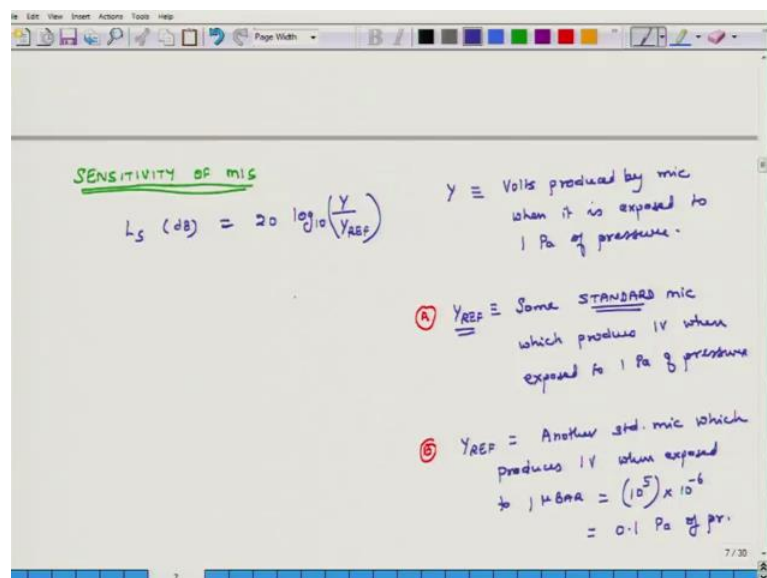 File Edit View Insert Actions Tools Help
Page Width
SENSITIVITY OF MIS
L_S (dB) = 20 log₁₀(Y/Y_REF)
Y ≡ Volts produced by mic
when it is exposed to
1 Pa of pressure.
(A) Y_REF ≡ Some STANDARD mic
which produces 1V when
exposed to 1 Pa of pressure
(B) Y_REF = Another std. mic which
produces 1V when exposed
to 1 μBAR = (10⁵) × 10⁻⁶
= 0.1 Pa of pr.
7/30
7